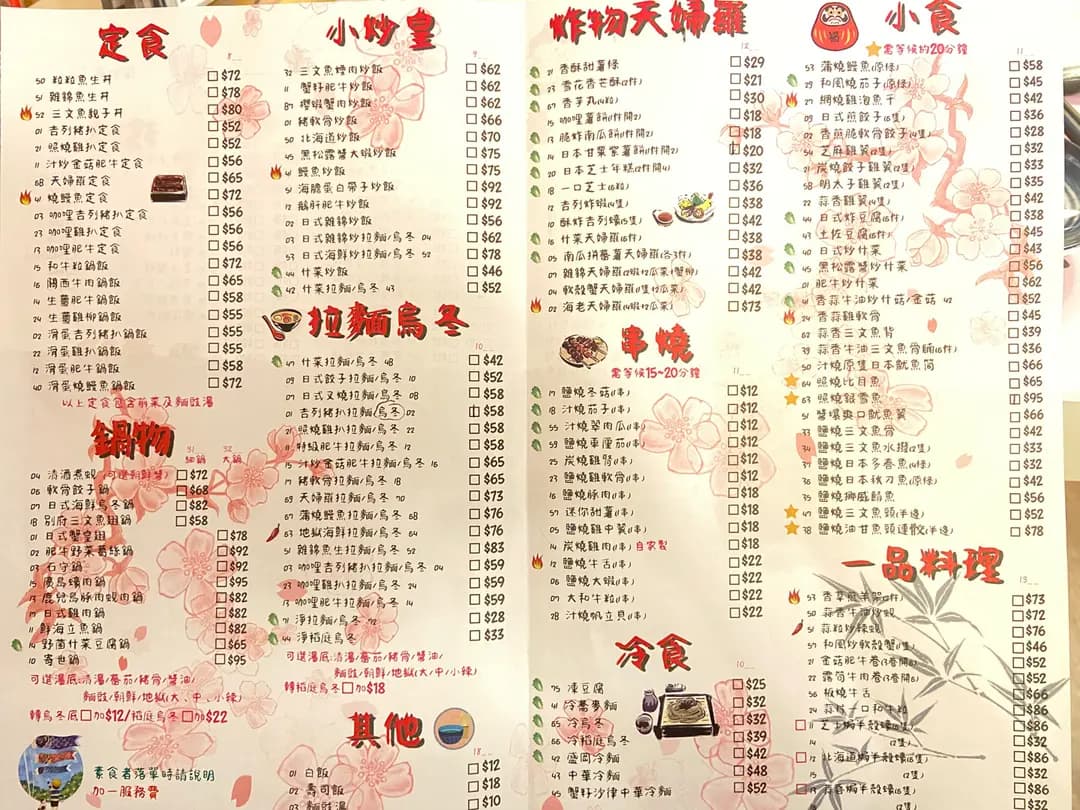 定食
8__
50 粒粒魚生丼 $72
51 雜錦魚生丼 $78
52 三文魚親子丼 $80
01 吉列豬扒定食 $52
21 照燒雞扒定食 $52
11 汁炒金菇肥牛定食 $56
68 天婦羅定食 $65
41 燒鰻魚定食 $72
03 咖哩吉列豬扒定食 $56
23 咖哩雞扒定食 $56
13 咖哩肥牛定食 $56
15 和牛粒鍋飯 $72
16 關西牛肉鍋飯 $65
14 生薑肥牛鍋飯 $58
24 生薑雞柳鍋飯 $55
02 滑蛋吉列豬扒鍋飯 $55
22 滑蛋雞扒鍋飯 $55
12 滑蛋肥牛鍋飯 $58
40 滑蛋燒鰻魚鍋飯 $72
以上定食包含前菜及麵豉湯
鍋物
31 細鍋 32 大鍋
04 清酒煮蜆 $72
06 軟骨餃子鍋 $68
07 日式海鮮烏冬鍋 $82
18 別府三文魚翅鍋 $58
01 日式蟹皇翅 $78
02 肥牛野菜葛絲鍋 $92
03 石守鍋 $92
15 廣島蠔肉鍋 $95
13 鹿兒島豚肉蜆肉鍋 $82
17 日式雞肉鍋 $82
11 鮮海立魚鍋 $82
14 野菌什菜豆腐鍋 $65
10 寄世鍋 $95
可選湯底:清湯/蕃茄/豬骨/醬油/
麵豉/朝鮮/地獄(大、中、小辣)
轉烏冬底 加$12/稻庭烏冬 加$22
素食者落單時請說明
加一服務費
小炒皇
9__
32 三文魚燒肉炒飯 $62
11 蟹籽肥牛炒飯 $62
87 櫻蝦蟹肉炒飯 $62
01 豬軟骨炒飯 $66
50 北海道炒飯 $70
45 黑松露醬大蝦炒飯 $75
41 鰻魚炒飯 $75
51 海膽蛋白帶子炒飯 $92
12 鵝肝肥牛炒飯 $92
02 日式雜錦炒飯 $56
03 日式雜錦炒拉麵/烏冬 04 $62
53 日式海鮮炒拉麵/烏冬 52 $78
44 什菜炒飯 $46
42 什菜炒拉麵/烏冬 43 $52
拉麵烏冬
10__
47 什菜拉麵/烏冬 48 $42
09 日式餃子拉麵/烏冬 10 $52
07 日式叉燒拉麵/烏冬 08 $58
01 吉列豬扒拉麵/烏冬 02 $58
21 照燒雞扒拉麵/烏冬 22 $58
11 特級肥牛拉麵/烏冬 12 $58
15 汁炒金菇肥牛拉麵/烏冬 16 $65
17 豬軟骨拉麵/烏冬 18 $65
69 天婦羅拉麵/烏冬 70 $73
67 蒲燒鰻魚拉麵/烏冬 68 $76
63 地獄海鮮拉麵/烏冬 64 $76
51 雜錦魚生拉麵/烏冬 52 $83
03 咖哩吉列豬扒拉麵/烏冬 04 $59
23 咖哩雞扒拉麵/烏冬 24 $59
13 咖哩肥牛拉麵/烏冬 14 $59
71 淨拉麵/烏冬 72 $28
44 淨稻庭烏冬 $33
可選湯底:清湯/蕃茄/豬骨/醬油/
麵豉/朝鮮/地獄(大/中/小辣)
轉稻庭烏冬 加$18
其他
18__
01 白飯 $12
02 壽司飯 $18
03 麵豉湯 $10
炸物天婦羅
12__
21 香酥甜薯條 $29
23 雪花香芒酥(2件) $21
67 香芋丸(4粒) $30
15 咖哩薯餅(1件開2) $18
13 脆炸南瓜餅(1件開2) $18
14 日本甘栗家薯餅(1件開2) $20
20 日本芝士年糕(2件開4) $32
18 一口芝士(6粒) $36
12 吉列炸蝦(4隻) $35
10 酥炸吉列蠔(5隻) $50
16 什菜天婦羅(6件) $38
05 南瓜拼蕃薯天婦羅(各3件) $38
07 雜錦天婦羅(2蝦+2瓜菜+蟹柳) $42
04 軟殼蟹天婦羅(1隻+2瓜菜) $42
02 海老天婦羅(4蝦+2瓜菜) $73
串燒
需等候15~20分鐘
11__
17 鹽燒冬菇(1串) $12
18 汁燒茄子(1串) $12
55 汁燒翠肉瓜(1串) $12
59 鹽燒車厘茄(1串) $12
25 炭燒雞腎(1串) $12
23 鹽燒雞軟骨(1串) $12
16 鹽燒豚肉(1串) $18
57 迷你甜薯(1串) $18
05 鹽燒雞中翼(1串) $18
14 炭燒雞肉(1串) 自家製 $18
12 鹽燒牛舌(1串) $22
06 鹽燒大蝦(1串) $22
07 大和牛粒(1串) $22
28 汁燒帆立貝(1串) $22
冷食
10__
75 凍豆腐 $25
41 冷蕎麥麵 $32
65 冷烏冬 $32
66 冷稻庭烏冬 $39
42 盛岡冷麵 $42
43 中華冷麵 $48
45 蟹籽沙律中華冷麵 $52
小食
需等候約20分鐘
11__
53 蒲燒鰻魚(原條) $58
29 和風燒茄子(原條) $45
27 網燒雞泡魚干 $42
09 日式煎餃子(6隻) $36
02 香煎脆軟骨餃子(4隻) $28
54 芝麻雞翼(2隻) $32
21 炭燒餃子雞翼(2隻) $33
58 明太子雞翼(2隻) $35
22 蒜香雞翼(4隻) $45
44 日式炸豆腐(6件) $38
43 土佐豆腐(6件) $43
40 日式炒什菜 $45
45 黑松露醬炒什菜 $56
01 肥牛炒什菜 $52
41 香蒜牛油炒什菇/金菇 42 $52
24 香蒜雞軟骨 $45
62 蒜香三文魚背 $39
39 蒜香牛油三文魚骨腩(6件) $36
50 汁燒原隻日本魷魚筒 $66
64 照燒比目魚 $65
63 照燒銀雪魚 $95
51 醬爆爽口魷魚翼 $66
33 鹽燒三文魚骨 $42
34 鹽燒三文魚水撥(2隻) $33
31 鹽燒日本多春魚(4條) $32
36 鹽燒日本秋刀魚(原條) $42
35 鹽燒挪威鯖魚 $56
47 鹽燒三文魚頭(半邊) $52
38 鹽燒油甘魚頭連骹(半邊) $78
一品料理
13__
53 $73
50 蒜香牛油炒蜆 $72
51 蒜粒炒辣蜆 $76
57 和風炒軟殼蟹(1隻) $46
21 金菇肥牛卷(3卷開6) $52
22 露筍牛肉卷(3卷開6) $52
56 板燒牛舌 $66
24 蒜炒一口和牛粒 $86
11 芝士焗半殼蠔(6隻) $86
14 (2隻) $32
12 北海道焗半殼蠔(6隻) $86
15 (2隻) $32
13 蒜蓉焗半殼蠔(6隻) $86
(2隻) $32